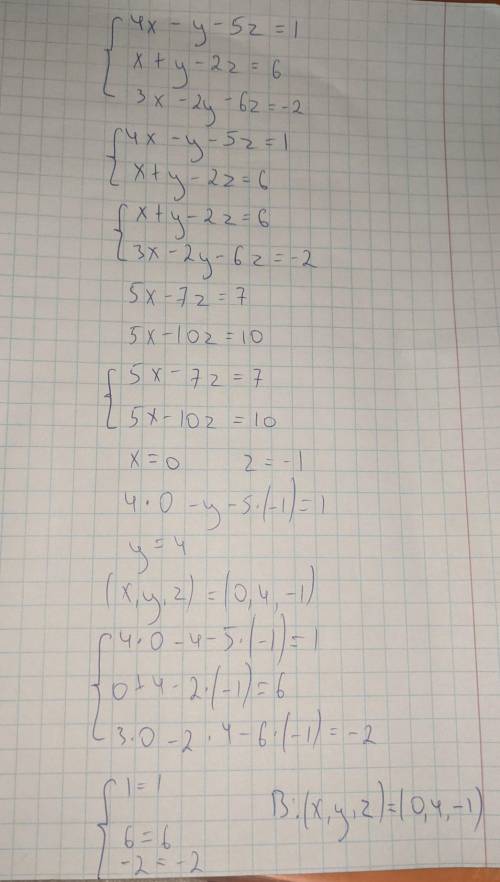 4x - y - 5z = 1
x + y - 2z = 6
3x - 2y - 6z = -2
4x - y - 5z = 1
x + y - 2z = 6
x + y - 2z = 6
3x - 2y - 6z = -2
5x - 7z = 7
5x - 10z = 10
5x - 7z = 7
5x - 10z = 10
x = 0 z = -1
4 · 0 - y - 5 · (-1) = 1
y = 4
(x, y, z) = (0, 4, -1)
4 · 0 - 4 - 5 · (-1) = 1
0 + 4 - 2 · (-1) = 6
3 · 0 - 2 · 4 - 6 · (-1) = -2
1 = 1
6 = 6 B: (x, y, z) = (0, 4, -1)
-2 = -2